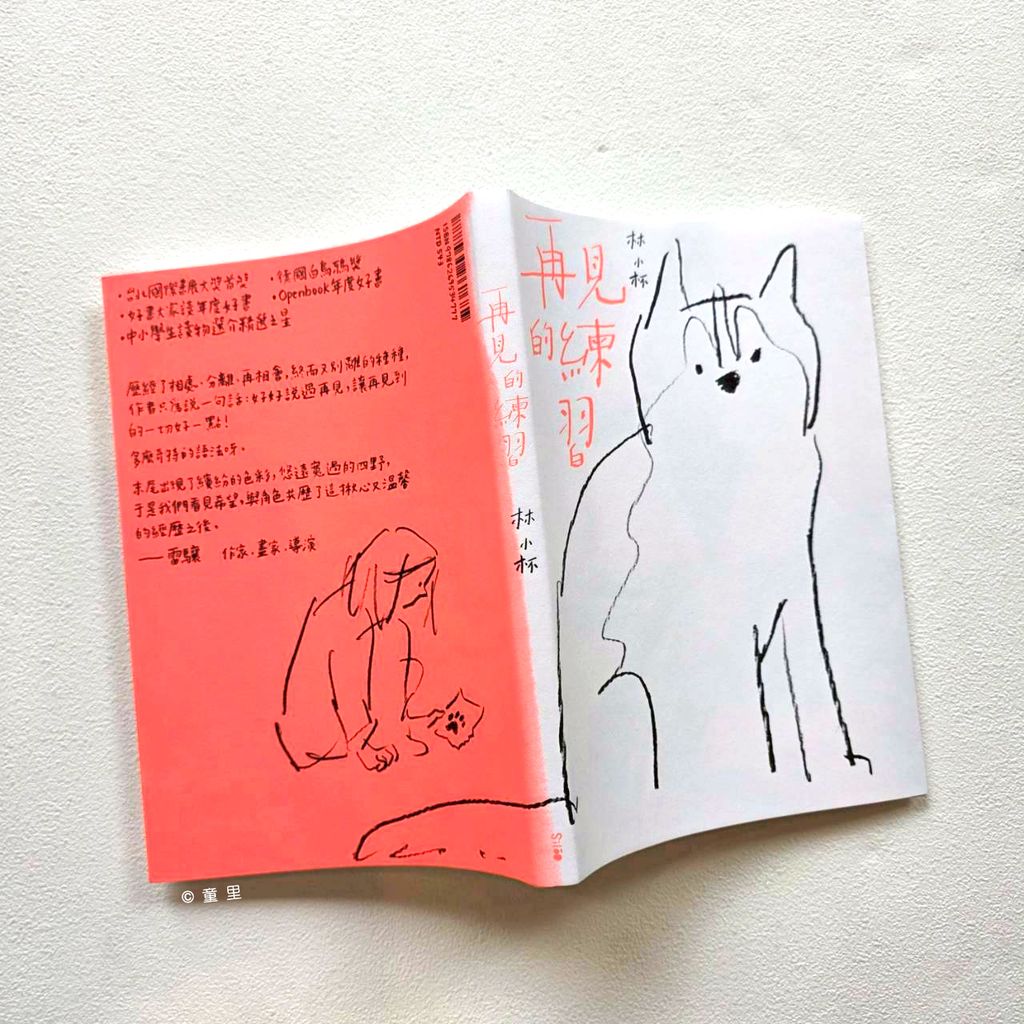 ・台北國際書展大獎首獎 ・德國白烏鴉獎
・好書大家讀年度好書 ・Openbook年度好書
・中小學生讀物選介精選之星
歷經了相處、分離、再相會，終而又別離的種種，
作者只為說一句話：好好說過再見，讓再見到
的一切好一點！
多麼奇特的語法呀。
末尾出現了繽紛的色彩，悠遠寬過的四野，
于是我們看見希望，與角色共歷了這揪心又溫馨
的經歷之後。
——雷驤 作家、畫家、導演
ISBN
NTD
再見的練習
林小杯
再見
的練習
林小杯
© 童里